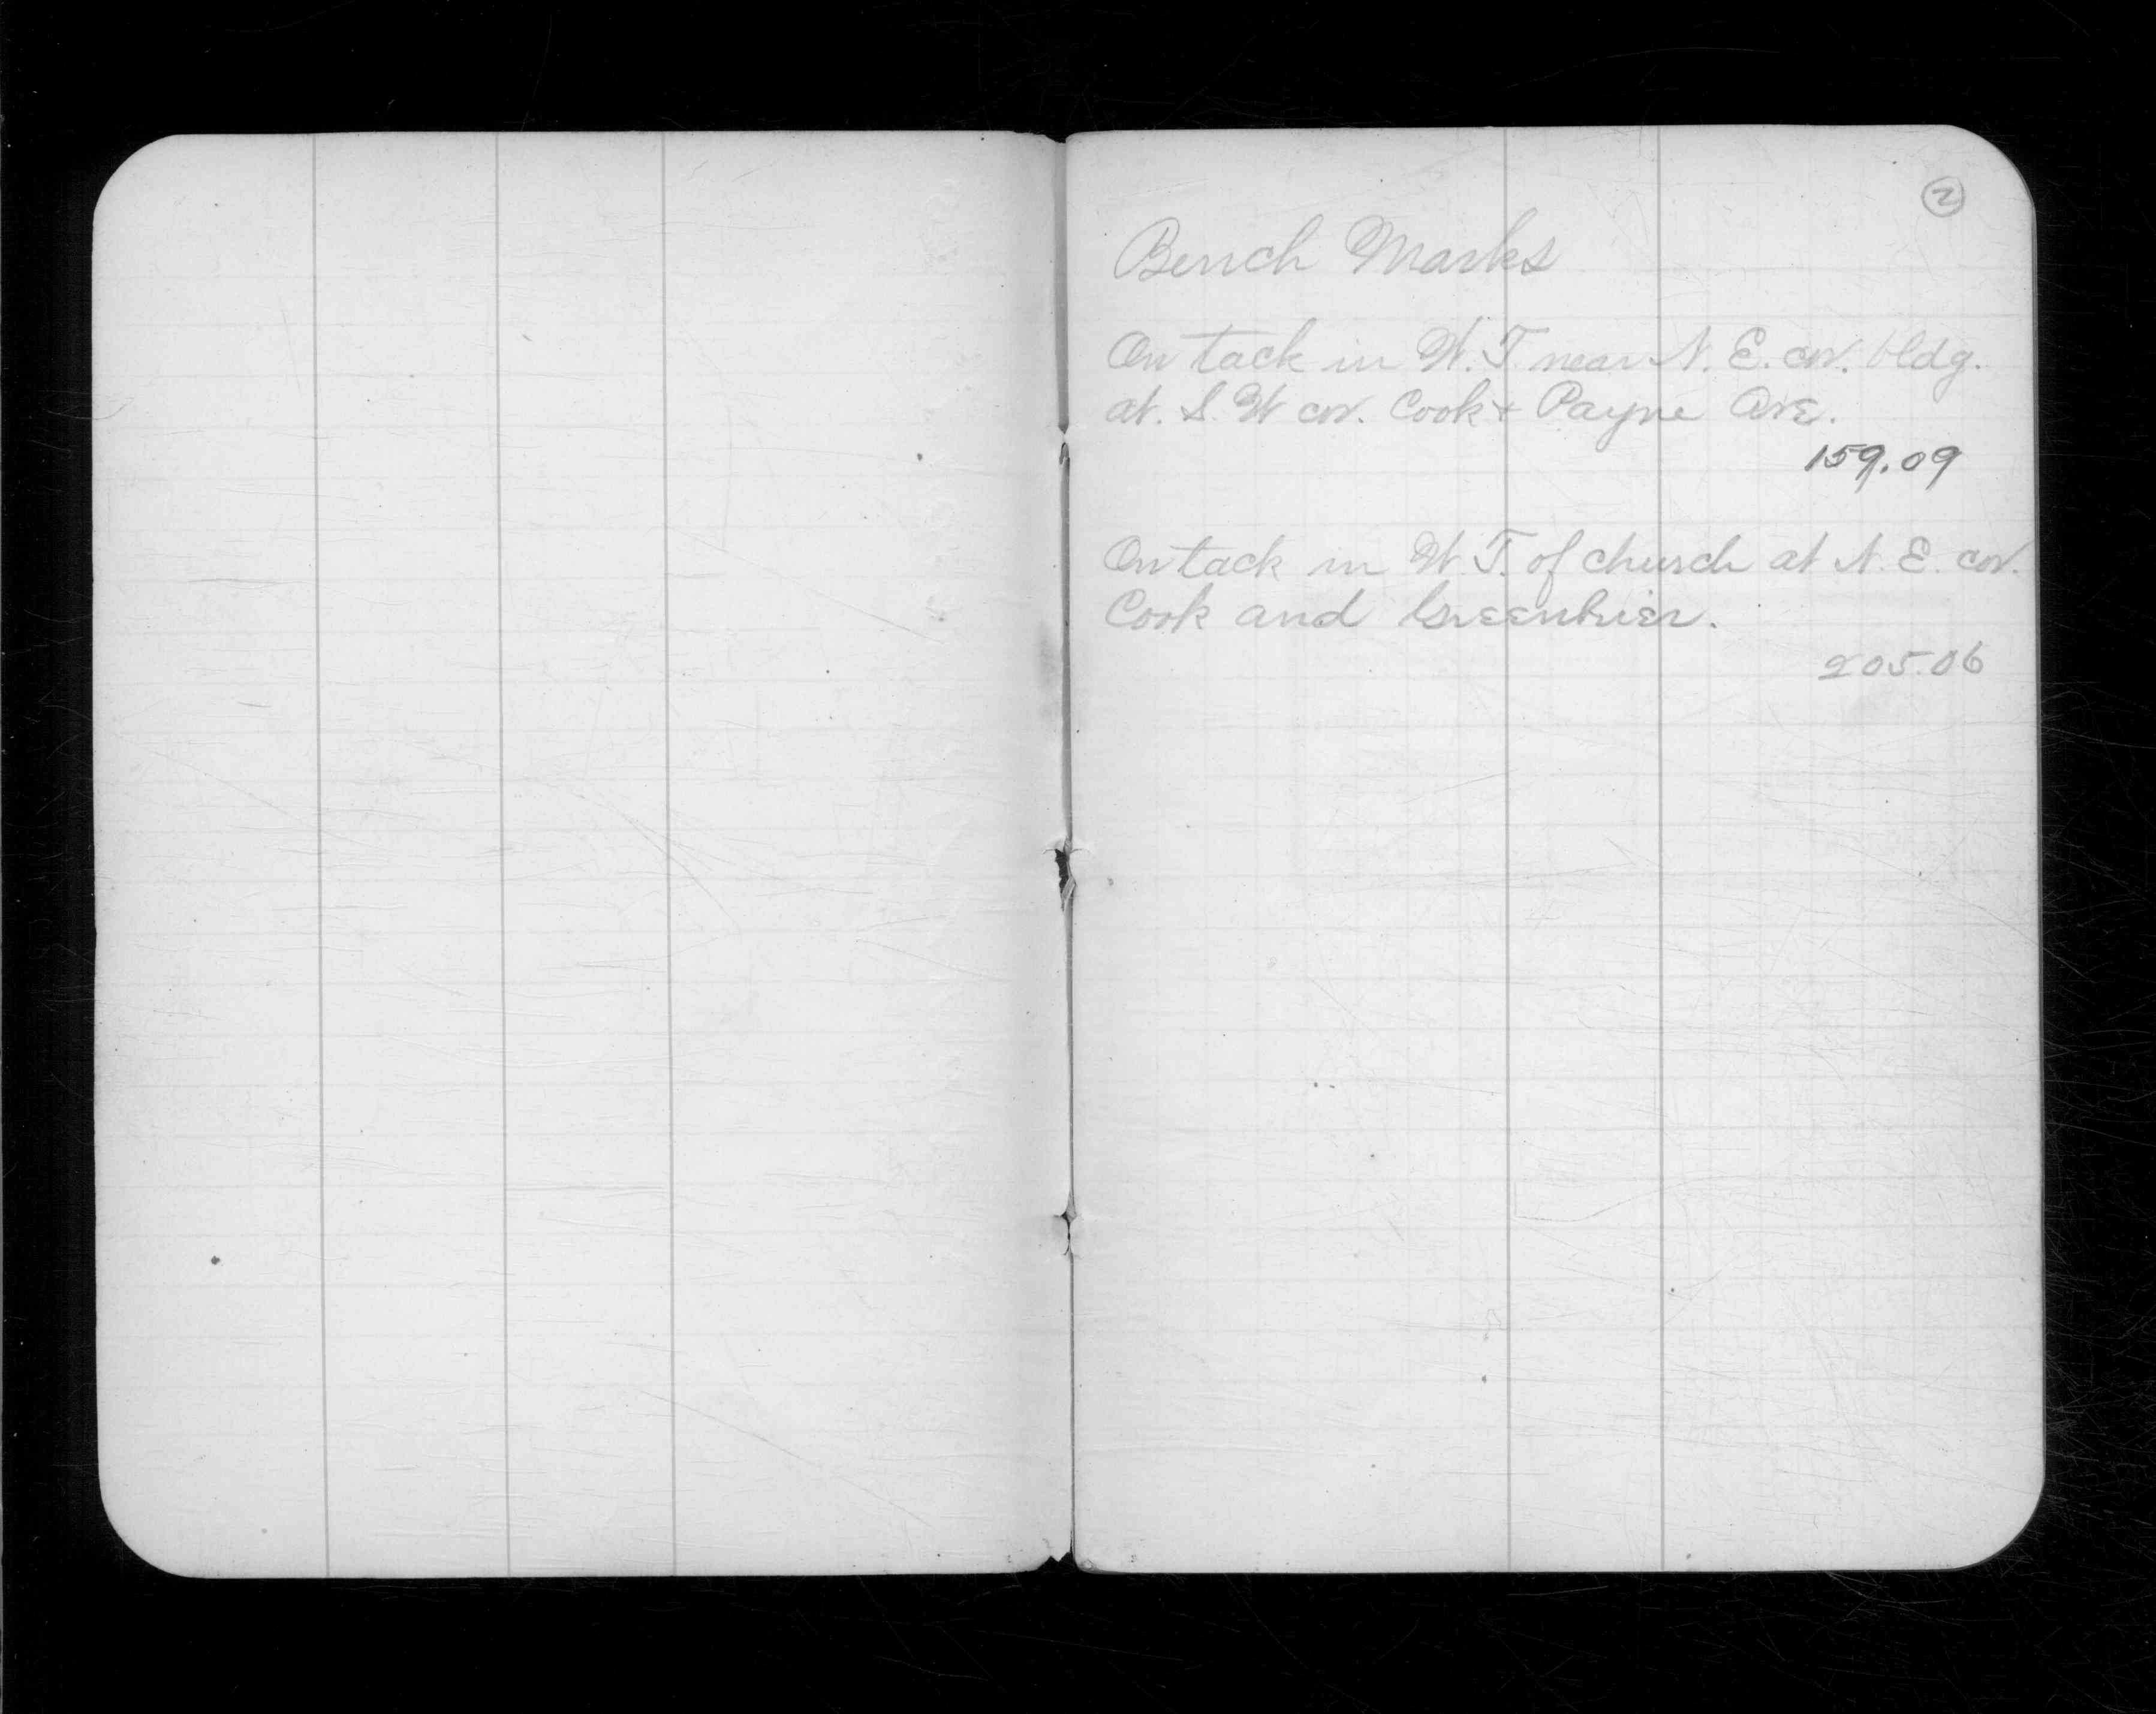 2
Bench Marks
On tack in W. T. near N. E. cor. bldg.
at. S. W cor. Cook + Payne Ave.
159.09
On tack in W. T. of church at N. E. cor.
Cook and Greenbrier.
205.06